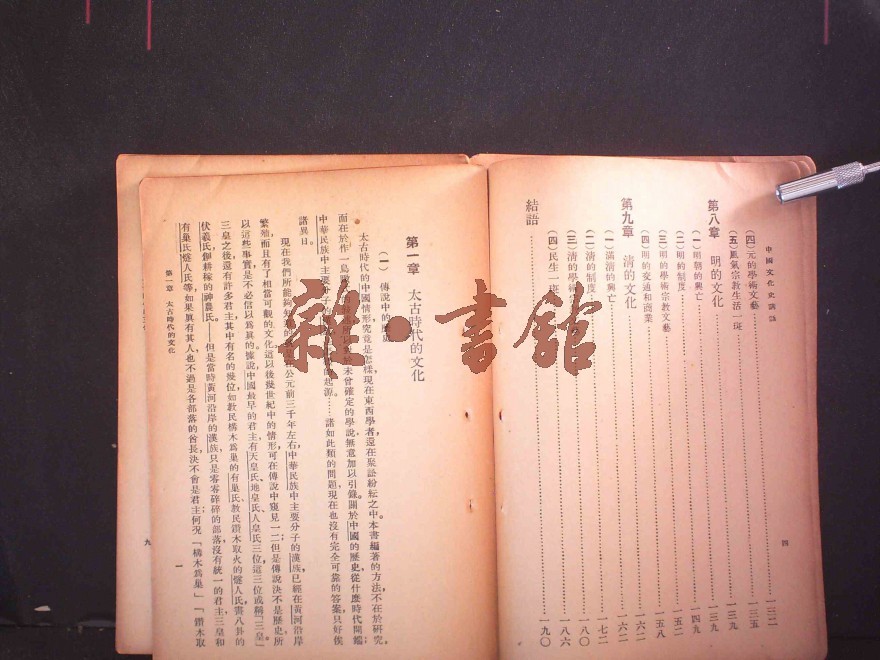 中國文化史講話
四
(四)元的學術文藝……一三二
(五)風氣宗教生活一斑……一三五
第八章 明的文化……一三九
(一)明朝的興亡……一三九
(二)明的制度……一四九
(三)明的學術宗教文藝……一五二
(四)明的交通和商業……一五八
第九章 清的文化……一六二
(一)滿清的興亡……一六二
(二)清的制度……一七二
(三)清的學術……一八〇
(四)民生一斑……一八六
結語……一九〇
雜·書館
第一章 太古時代的文化
(一) 傳說中的歷史
太古時代的中國情形,究竟是怎樣,現在東西學者還在聚訟紛紜之中。本書編著的方法,不在於研究,
而在於作一鳥瞰 所以對於未曾確定的學說,無意加以引錄。關於中國的歷史從什麼時代開端;
中華民族中主要分子的 的起源……諸如此類的問題,現在也沒有完全可靠的答案,只好俟
諸異日。
現在我們所能夠知道的 在公元前三千年左右,中華民族中主要分子的漢族,已經在黃河沿岸
繁殖,而且有了相當可觀的文化,這以後幾世紀中的情形,可在傳說中窺見一二;但是傳說決不是歷史,所
以這些事實,是不必信以爲眞的。據說,中國最早的君主,有天皇氏、地皇氏、人皇氏三位,這三位或稱「三皇」。
三皇之後,還有許多君主,其中有名的幾位,如教民構木爲巢的有巢氏,教民鑽木取火的燧人氏,畫八卦的
伏羲氏,創耕稼的神農氏。 但是當時黃河沿岸的漢族,只是零零碎碎的部落,沒有統一的君主,三皇和
有巢氏燧人氏等,如果眞有其人,也不過是各部落的酋長,決不會是君主;何況「構木爲巢」「鑽木取
第一章 太古時代的文化
一
九